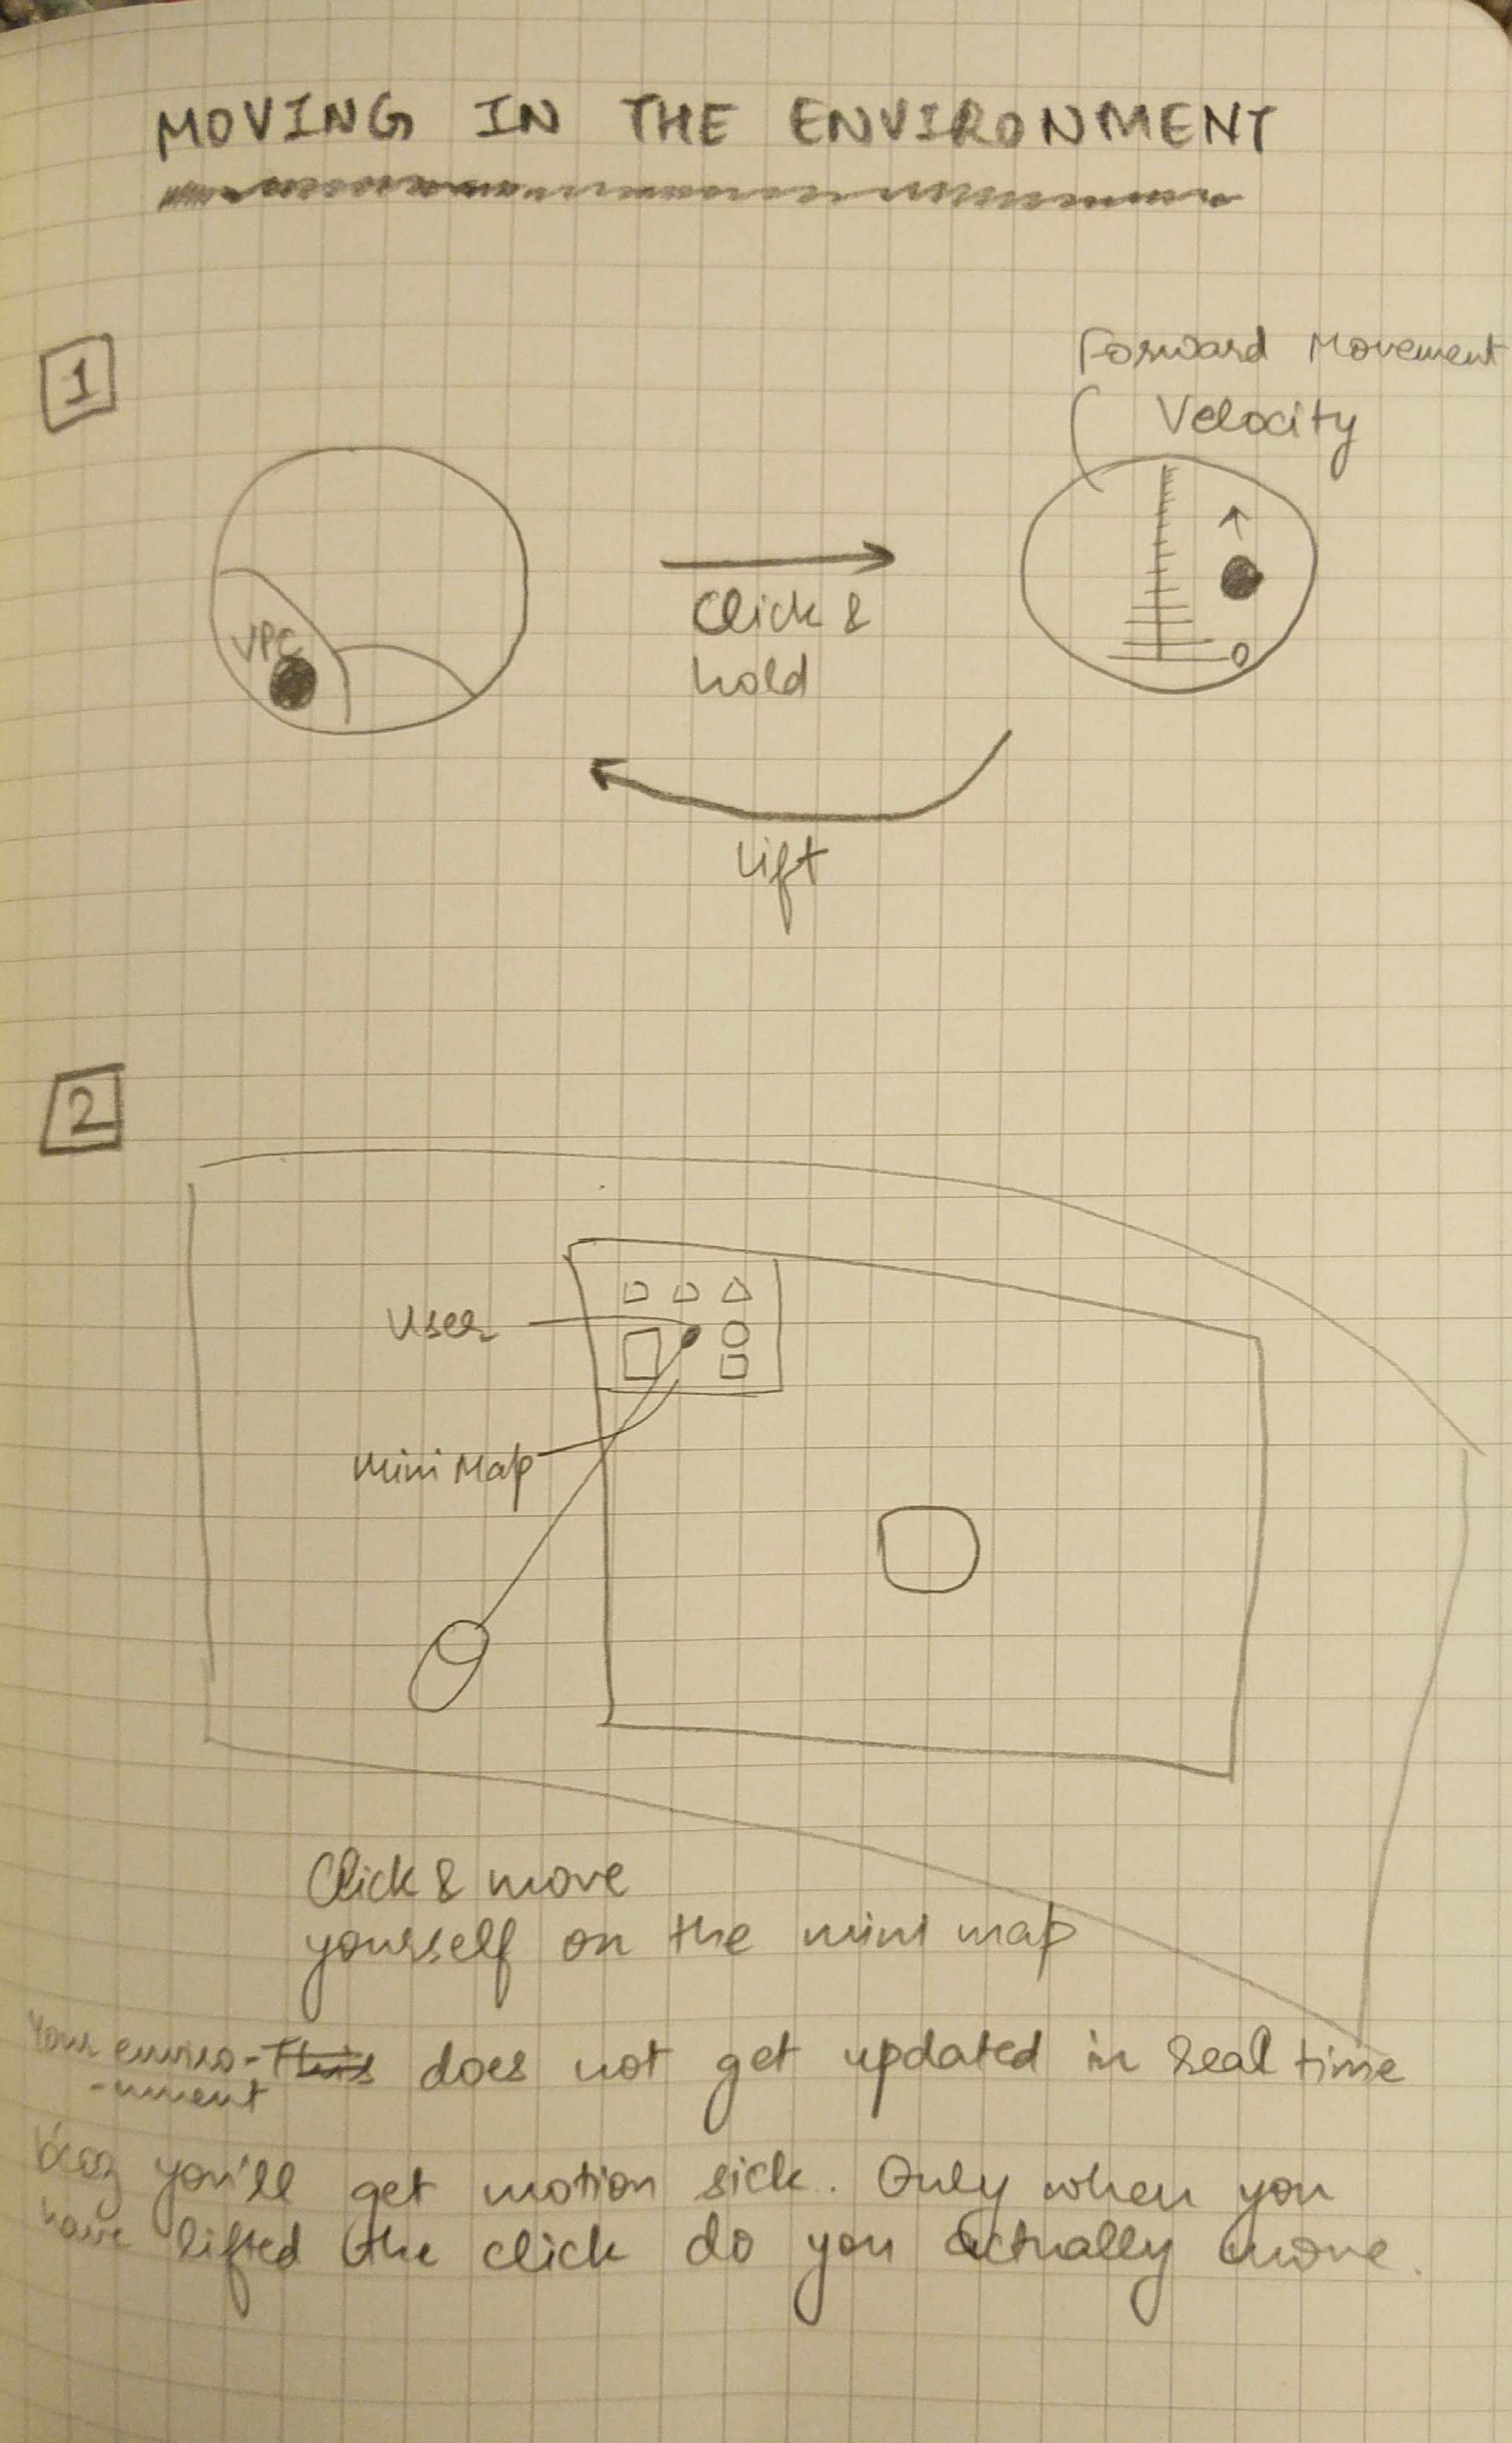 MOVING IN THE ENVIRONMENT
1
Forward Movement
Velocity
VPC
Click &
hold
0
Lift
2
User
Mini Map
Click & move
yourself on the mini map
Your enviro-
-nment
This does not get updated in real time
bcoz you'll get motion sick. Only when you
have lifted the click do you actually move.